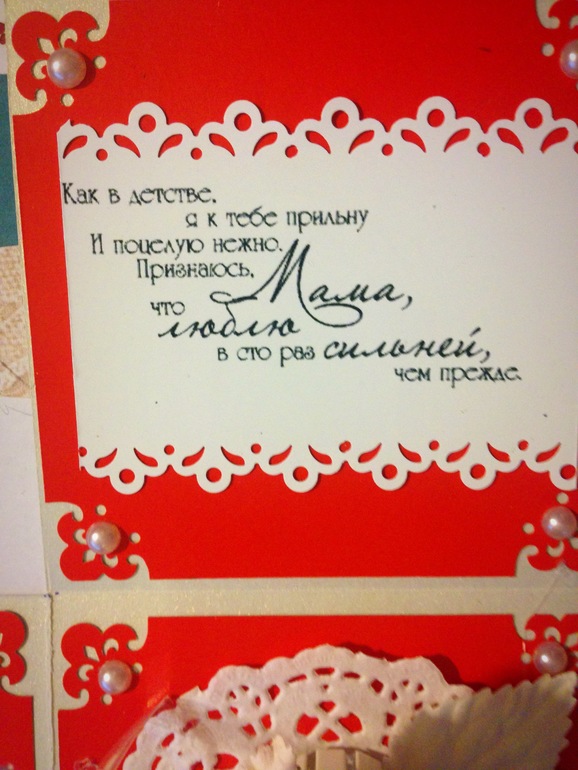 Как в детстве,
я к тебе прильну
И поцелую нежно.
Признаюсь, Мама,
что
люблю
в сто раз сильней,
чем прежде.